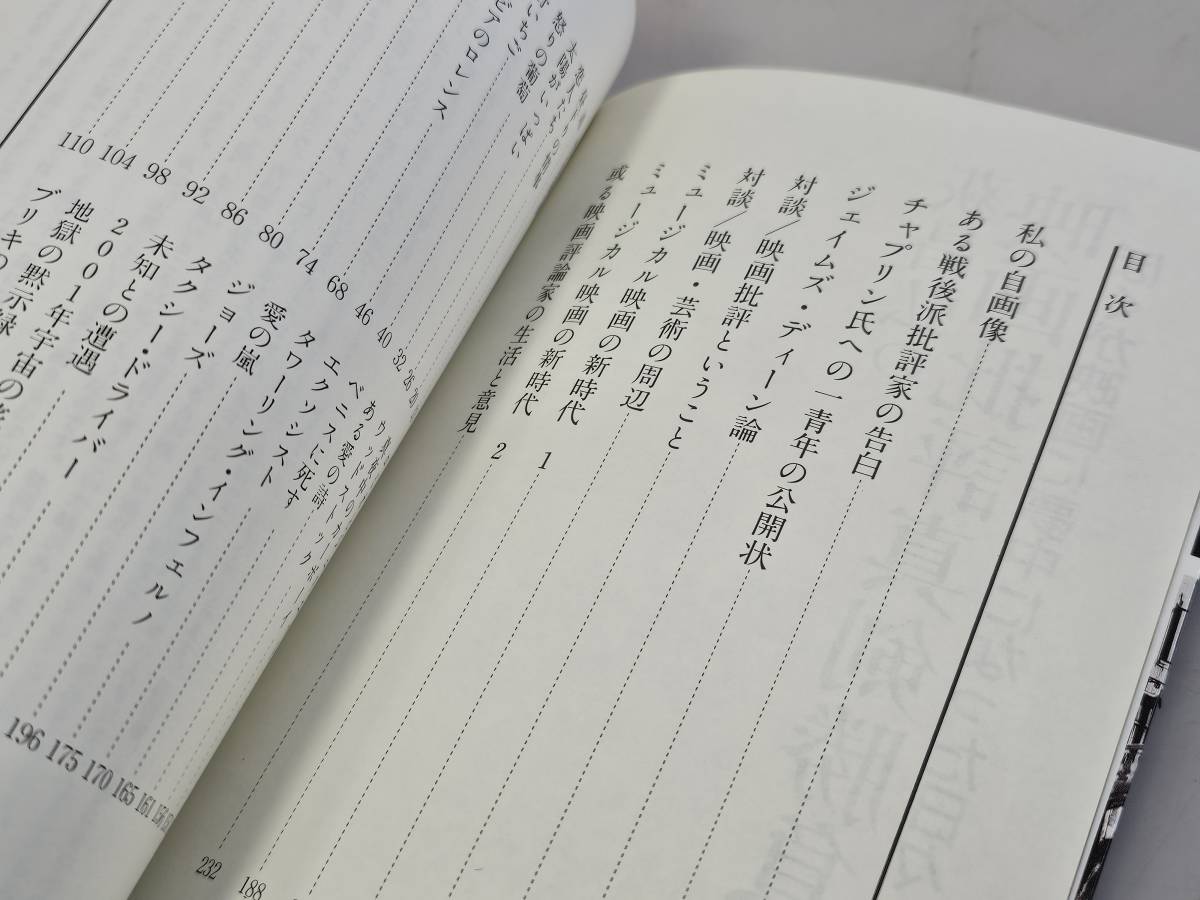 目次
私の自画像
ある戦後派批評家の告白
チャプリン氏への一青年の公開状
ジェイムズ・ディーン論
対談/映画批評ということ
対談/映画・芸術の周辺
ミュージカル映画の新時代 1
ミュージカル映画の新時代 2
或る映画評論家の生活と意見
232
188
太陽がいっぱい
怒りの葡萄
いちご
ビアのロレンス
26
32
40
46
68
74
80
86
92
98
104
110
ベニスに死す
エクソシスト
タワーリング・インフェルノ
愛の嵐
ジョーズ
タクシー・ドライバー
未知との遭遇
2001年宇宙の
地獄の黙示録
ブリキの
161
165
170
175
196